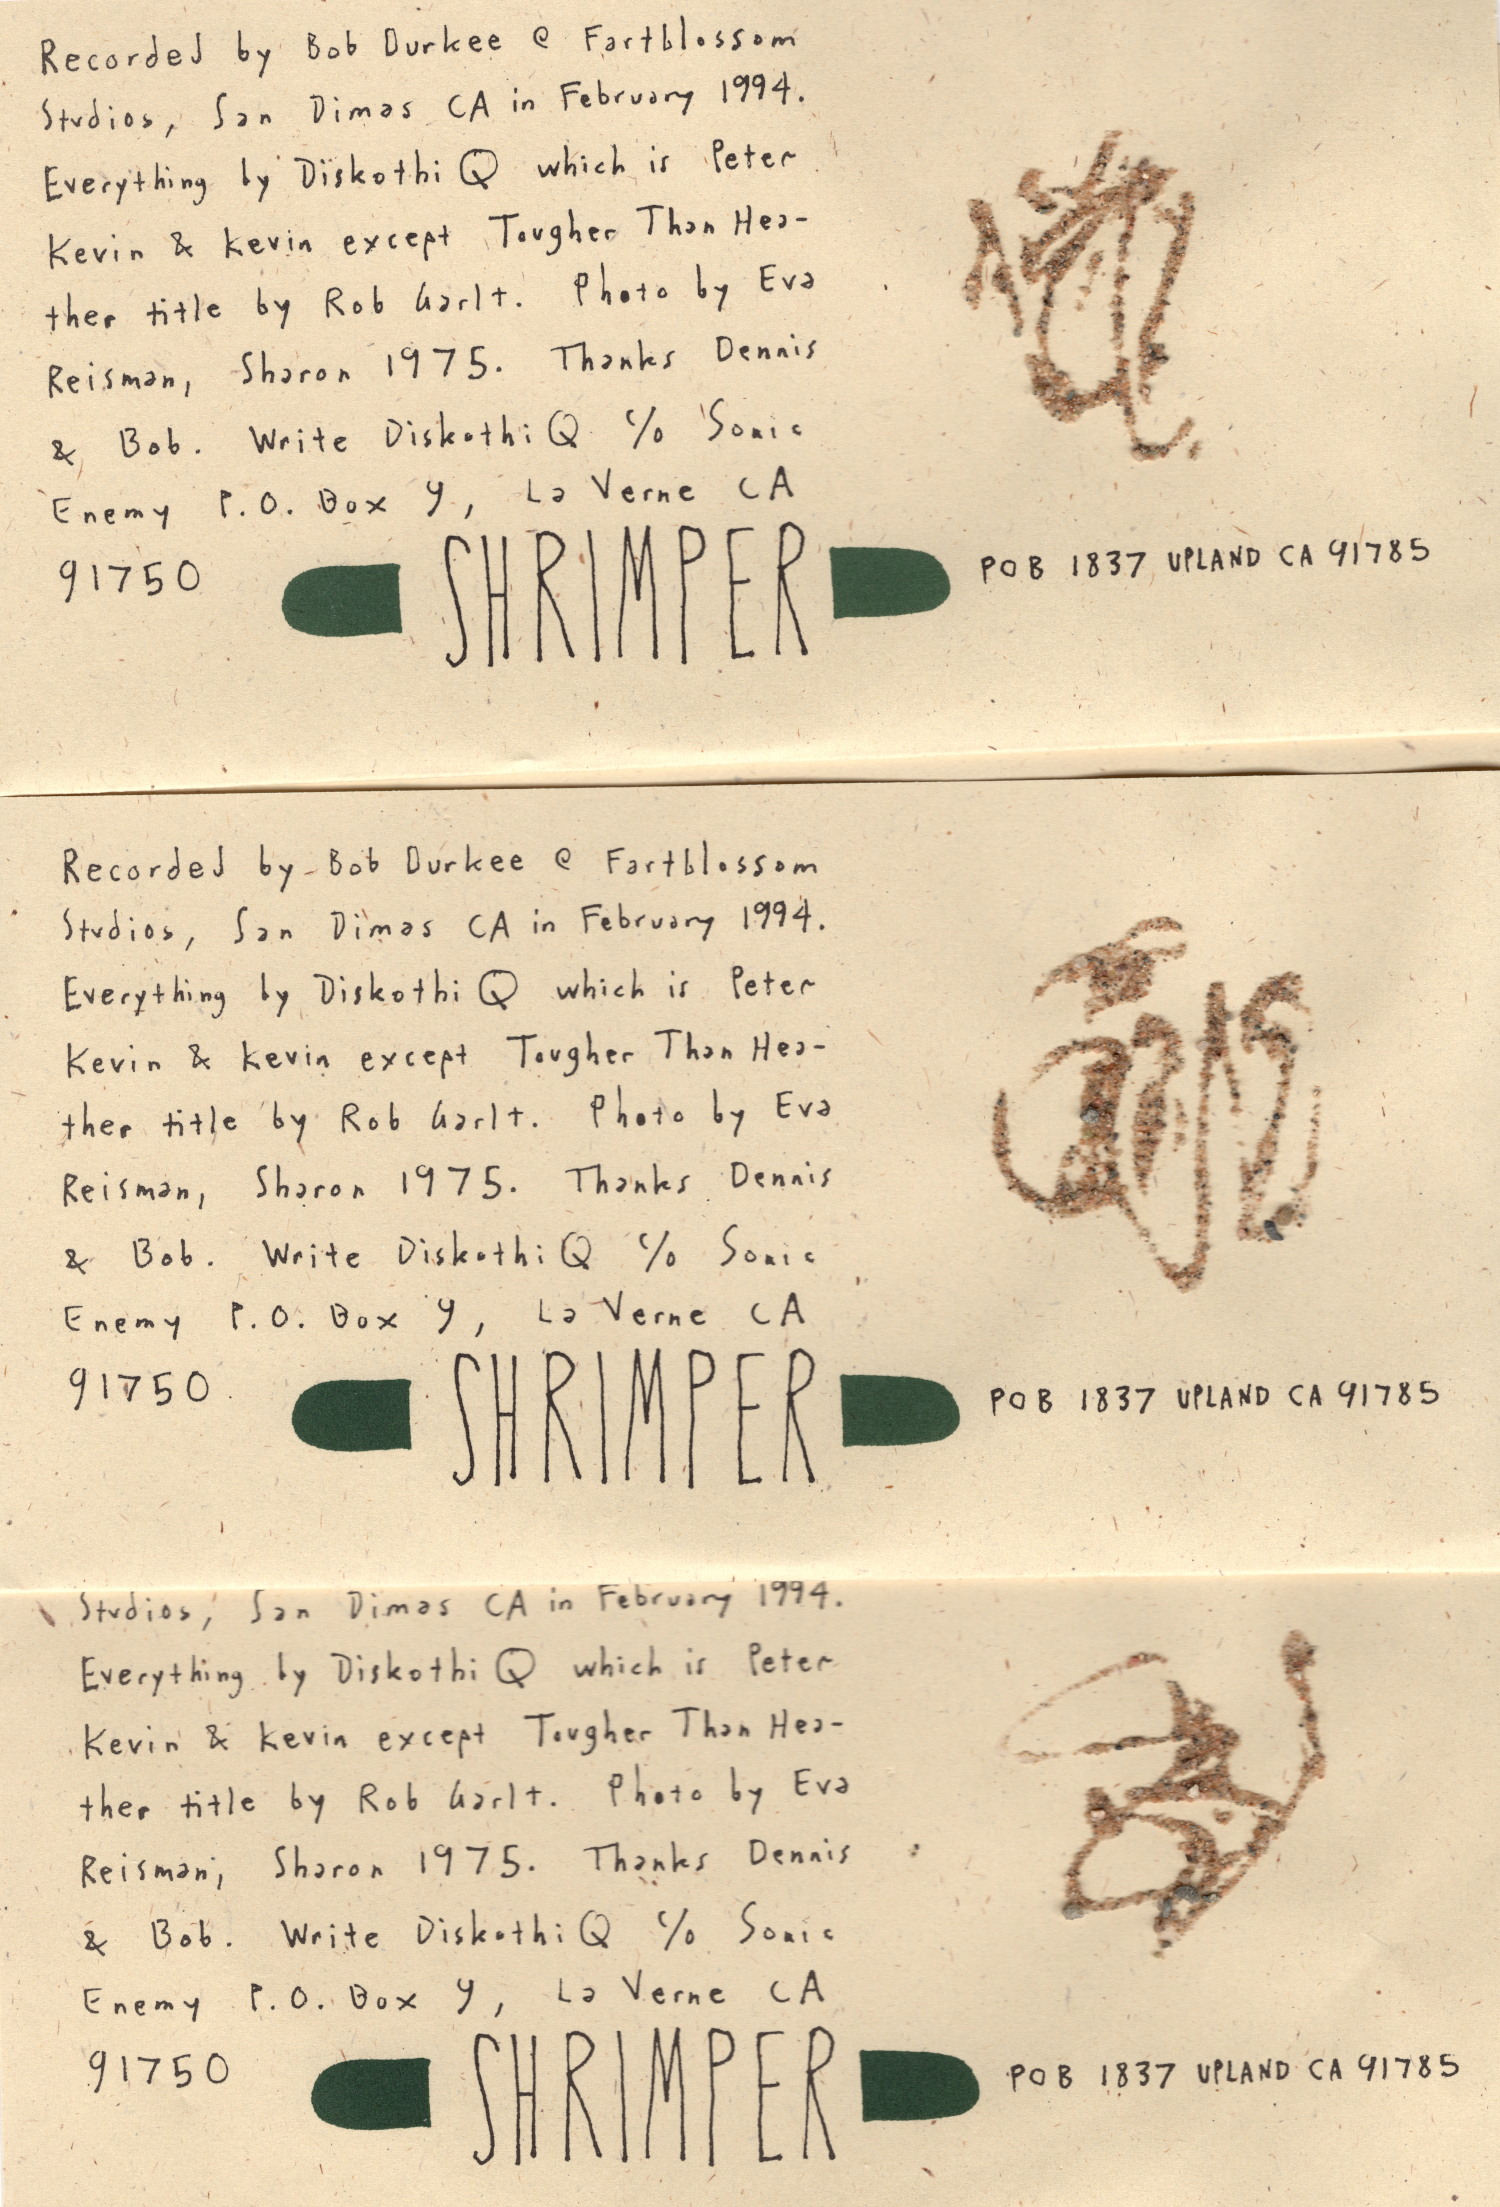 Recorded by Bob Durkee @ Fartblossom
Studios, San Dimas CA in February 1994.
Everything by Diskothi Q which is Peter
Kevin & Kevin except Tougher Than Hea-
ther title by Rob Garlt. Photo by Eva
Reisman, Sharon 1975. Thanks Dennis
& Bob. Write Diskothi Q c/o Sonic
Enemy P.O. Box Y, La Verne CA
91750
SHRIMPER POB 1837 UPLAND CA 91785
Recorded by Bob Durkee @ Fartblossom
Studios, San Dimas CA in February 1994.
Everything by Diskothi Q which is Peter
Kevin & Kevin except Tougher Than Hea-
ther title by Rob Garlt. Photo by Eva
Reisman, Sharon 1975. Thanks Dennis
& Bob. Write Diskothi Q c/o Sonic
Enemy P.O. Box Y, La Verne CA
91750
SHRIMPER POB 1837 UPLAND CA 91785
Studios, San Dimas CA in February 1994.
Everything by Diskothi Q which is Peter
Kevin & Kevin except Tougher Than Hea-
ther title by Rob Garlt. Photo by Eva
Reisman, Sharon 1975. Thanks Dennis
& Bob. Write Diskothi Q c/o Sonic
Enemy P.O. Box Y, La Verne CA
91750
SHRIMPER POB 1837 UPLAND CA 91785